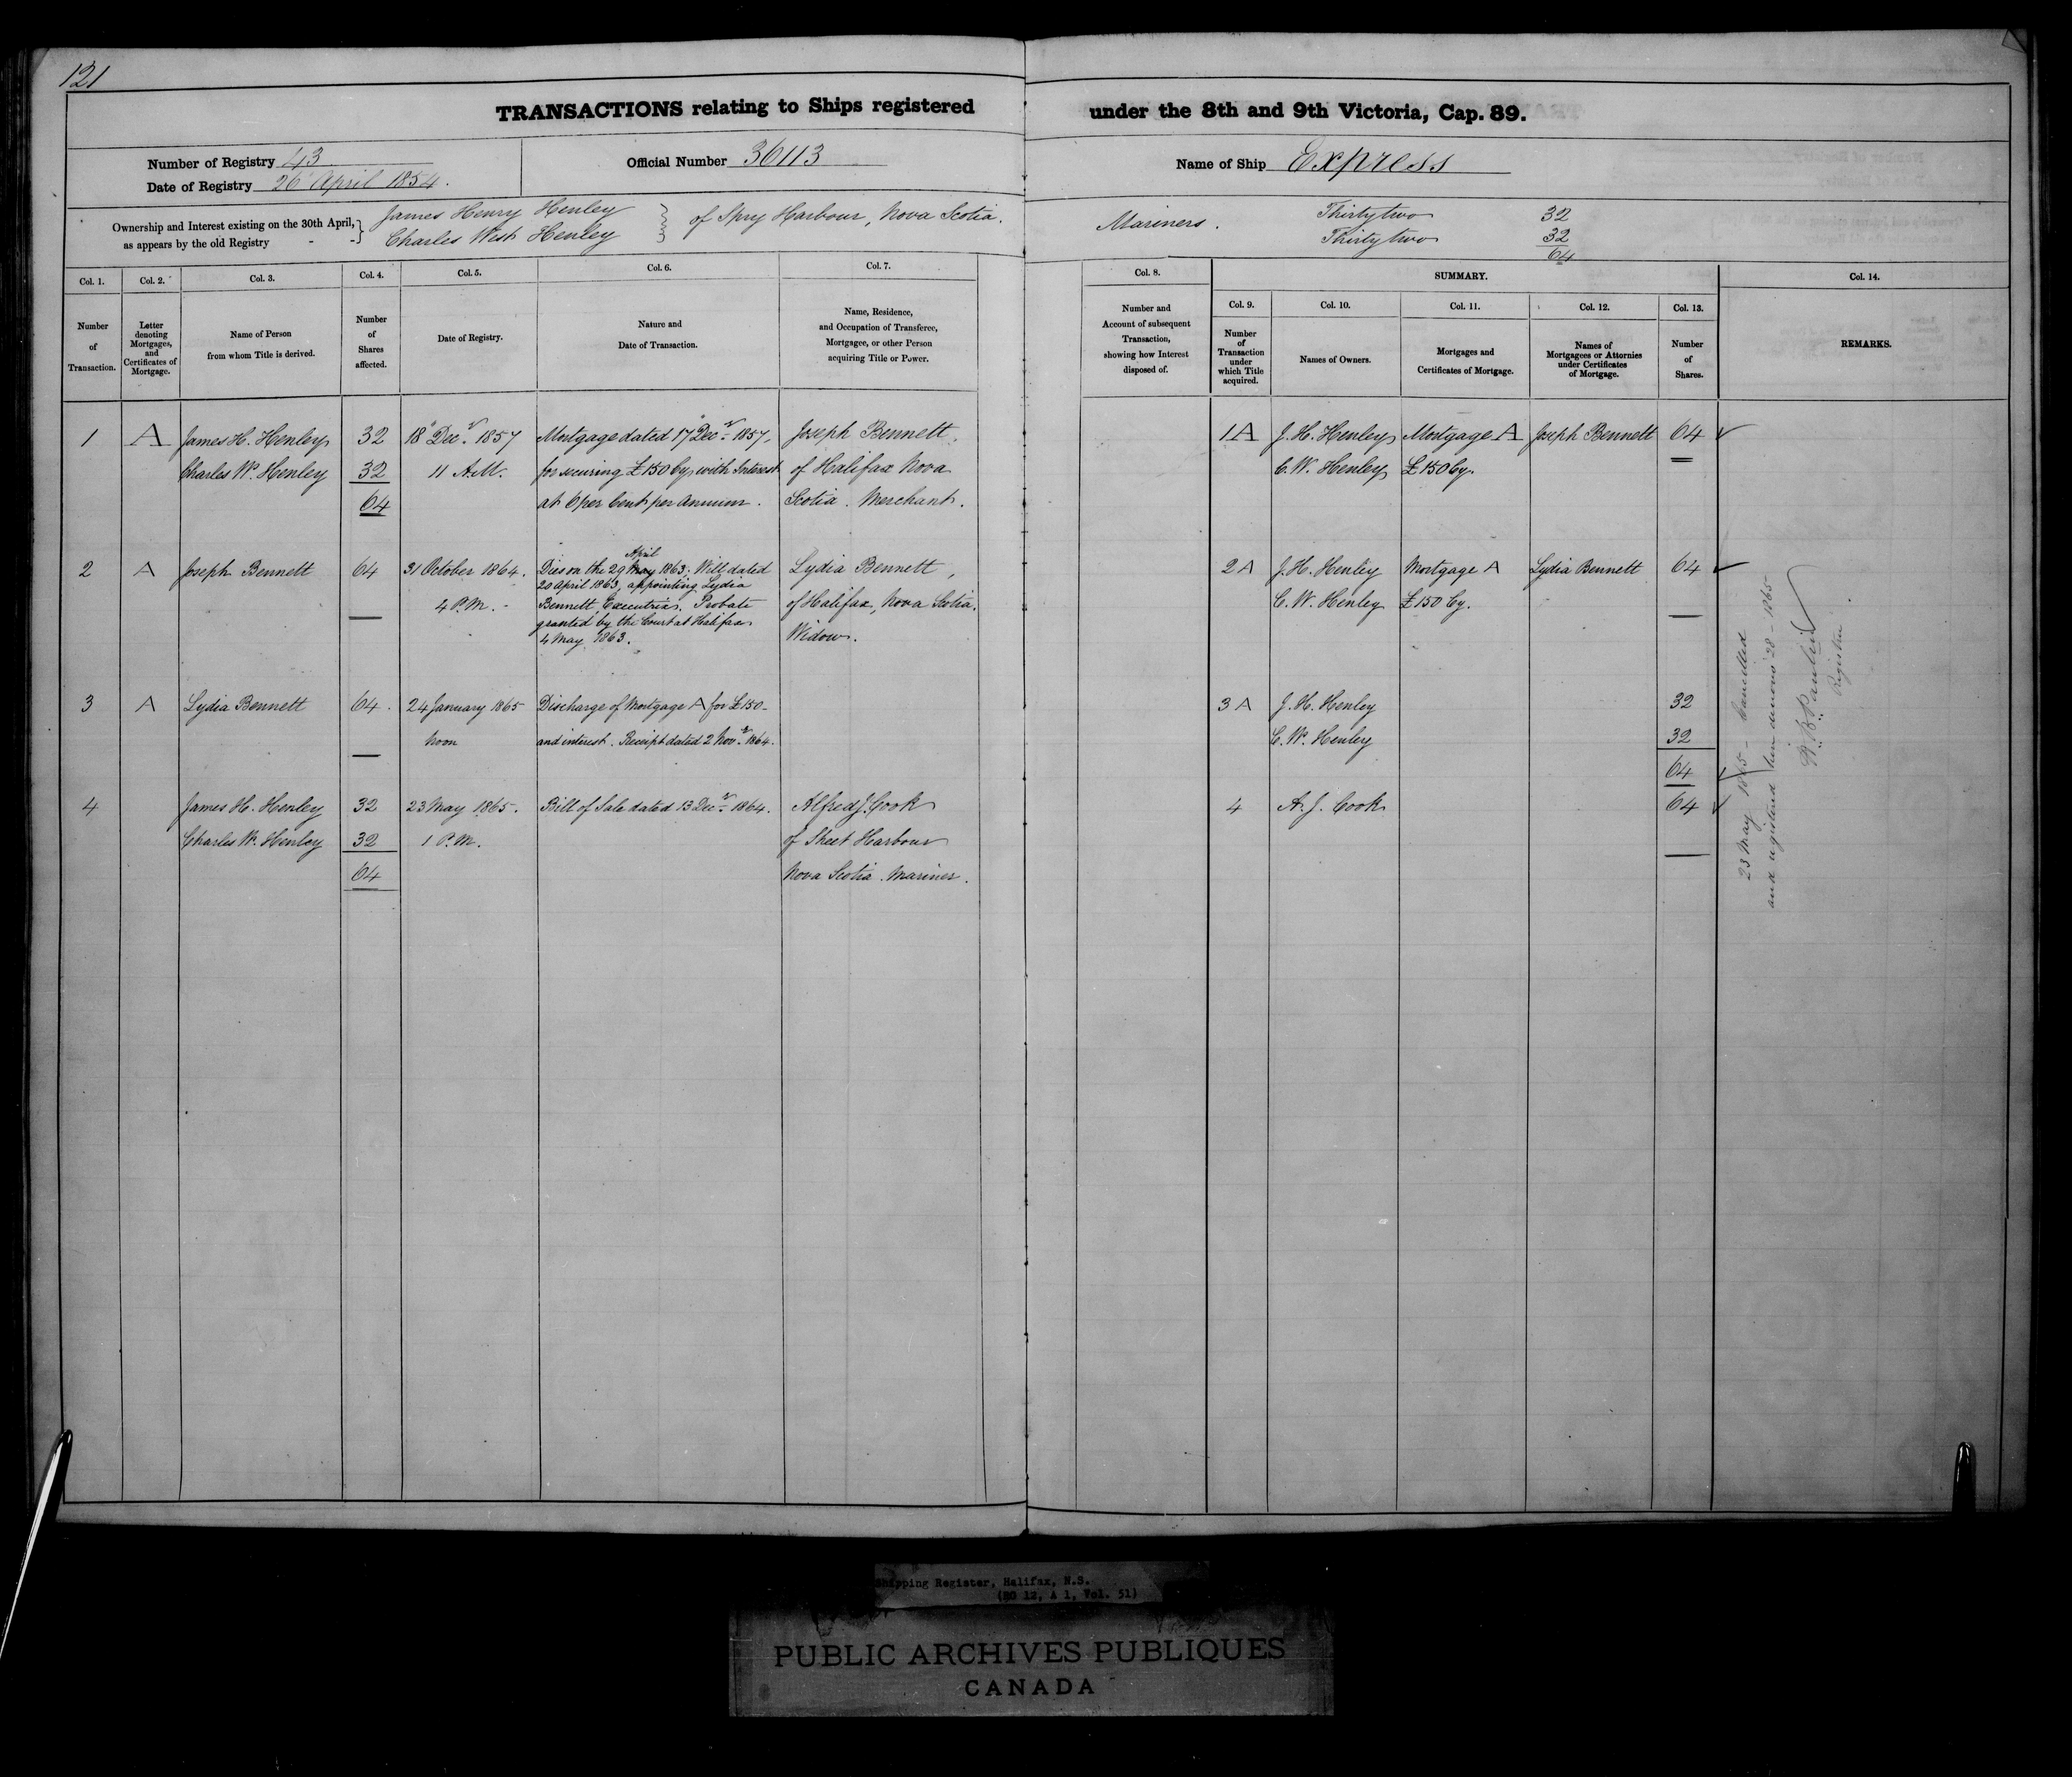 121
TRANSACTIONS relating to Ships registered under the 8th and 9th Victoria, Cap. 89.
Number of Registry 43
Date of Registry 26 April 1854.
Official Number 36113
Name of Ship Express
Ownership and Interest existing on the 30th April, as appears by the old Registry - -
James Henry Henley
Charles West Henley
of Spry Harbour, Nova Scotia.
Mariners.
Thirty two 32
Thirty two 32
64
Col. 1.
Number of Transaction.
Col. 2.
Letter denoting Mortgages, and Certificates of Mortgage.
Col. 3.
Name of Person from whom Title is derived.
Col. 4.
Number of Shares affected.
Col. 5.
Date of Registry.
Col. 6.
Nature and Date of Transaction.
Col. 7.
Name, Residence, and Occupation of Transferee, Mortgagee, or other Person acquiring Title or Power.
Col. 8.
Number and Account of subsequent Transaction, showing how Interest disposed of.
SUMMARY.
Col. 9.
Number of Transaction under which Title acquired.
Col. 10.
Names of Owners.
Col. 11.
Mortgages and Certificates of Mortgage.
Col. 12.
Names of Mortgagees or Attornies under Certificates of Mortgage.
Col. 13.
Number of Shares.
Col. 14.
REMARKS.
1 A James H. Henley 32 18" Decr. 1857 Mortgage dated 17" Decr. 1857, Joseph Bennett, 1A J. H. Henley Mortgage A Joseph Bennett 64
Charles W. Henley 32 11 A.M. for securing £150 Cy, with Interest of Halifax Nova C. W. Henley £150 Cy.
64 at 6 per Cent per Annum. Scotia. Merchant.
2 A Joseph Bennett 64 31 October 1864. Dies on the 29 May April 1863. Will dated Lydia Bennett, 2 A J. H. Henley Mortgage A Lydia Bennett 64
20 April 1863, appointing Lydia
4 P.M. - Bennett, Executrix. Probate of Halifax, Nova Scotia. C. W. Henley £150 Cy.
granted by the Court at Halifax
4 May 1863. Widow.
3 A Lydia Bennett 64. 24 January 1865 Discharge of Mortgage A for £150- 3 A J. H. Henley 32
Noon and interest. Receipt dated 2 Novr. 1864. C. W. Henley 32
64
4 James H. Henley 32 23 May 1865. Bill of Sale dated 13 Decr. 1864. Alfred J. Cook 4 A. J. Cook 64
Charles W. Henley 32 1 P.M. of Sheet Harbour
64 Nova Scotia. Mariner.
23 May 1865 - Cancelled
and registered 28 - 1865
Registrar
Shipping Register, Halifax, N.S.
(RG 12, A 1, Vol. 51)
PUBLIC ARCHIVES PUBLIQUES
CANADA